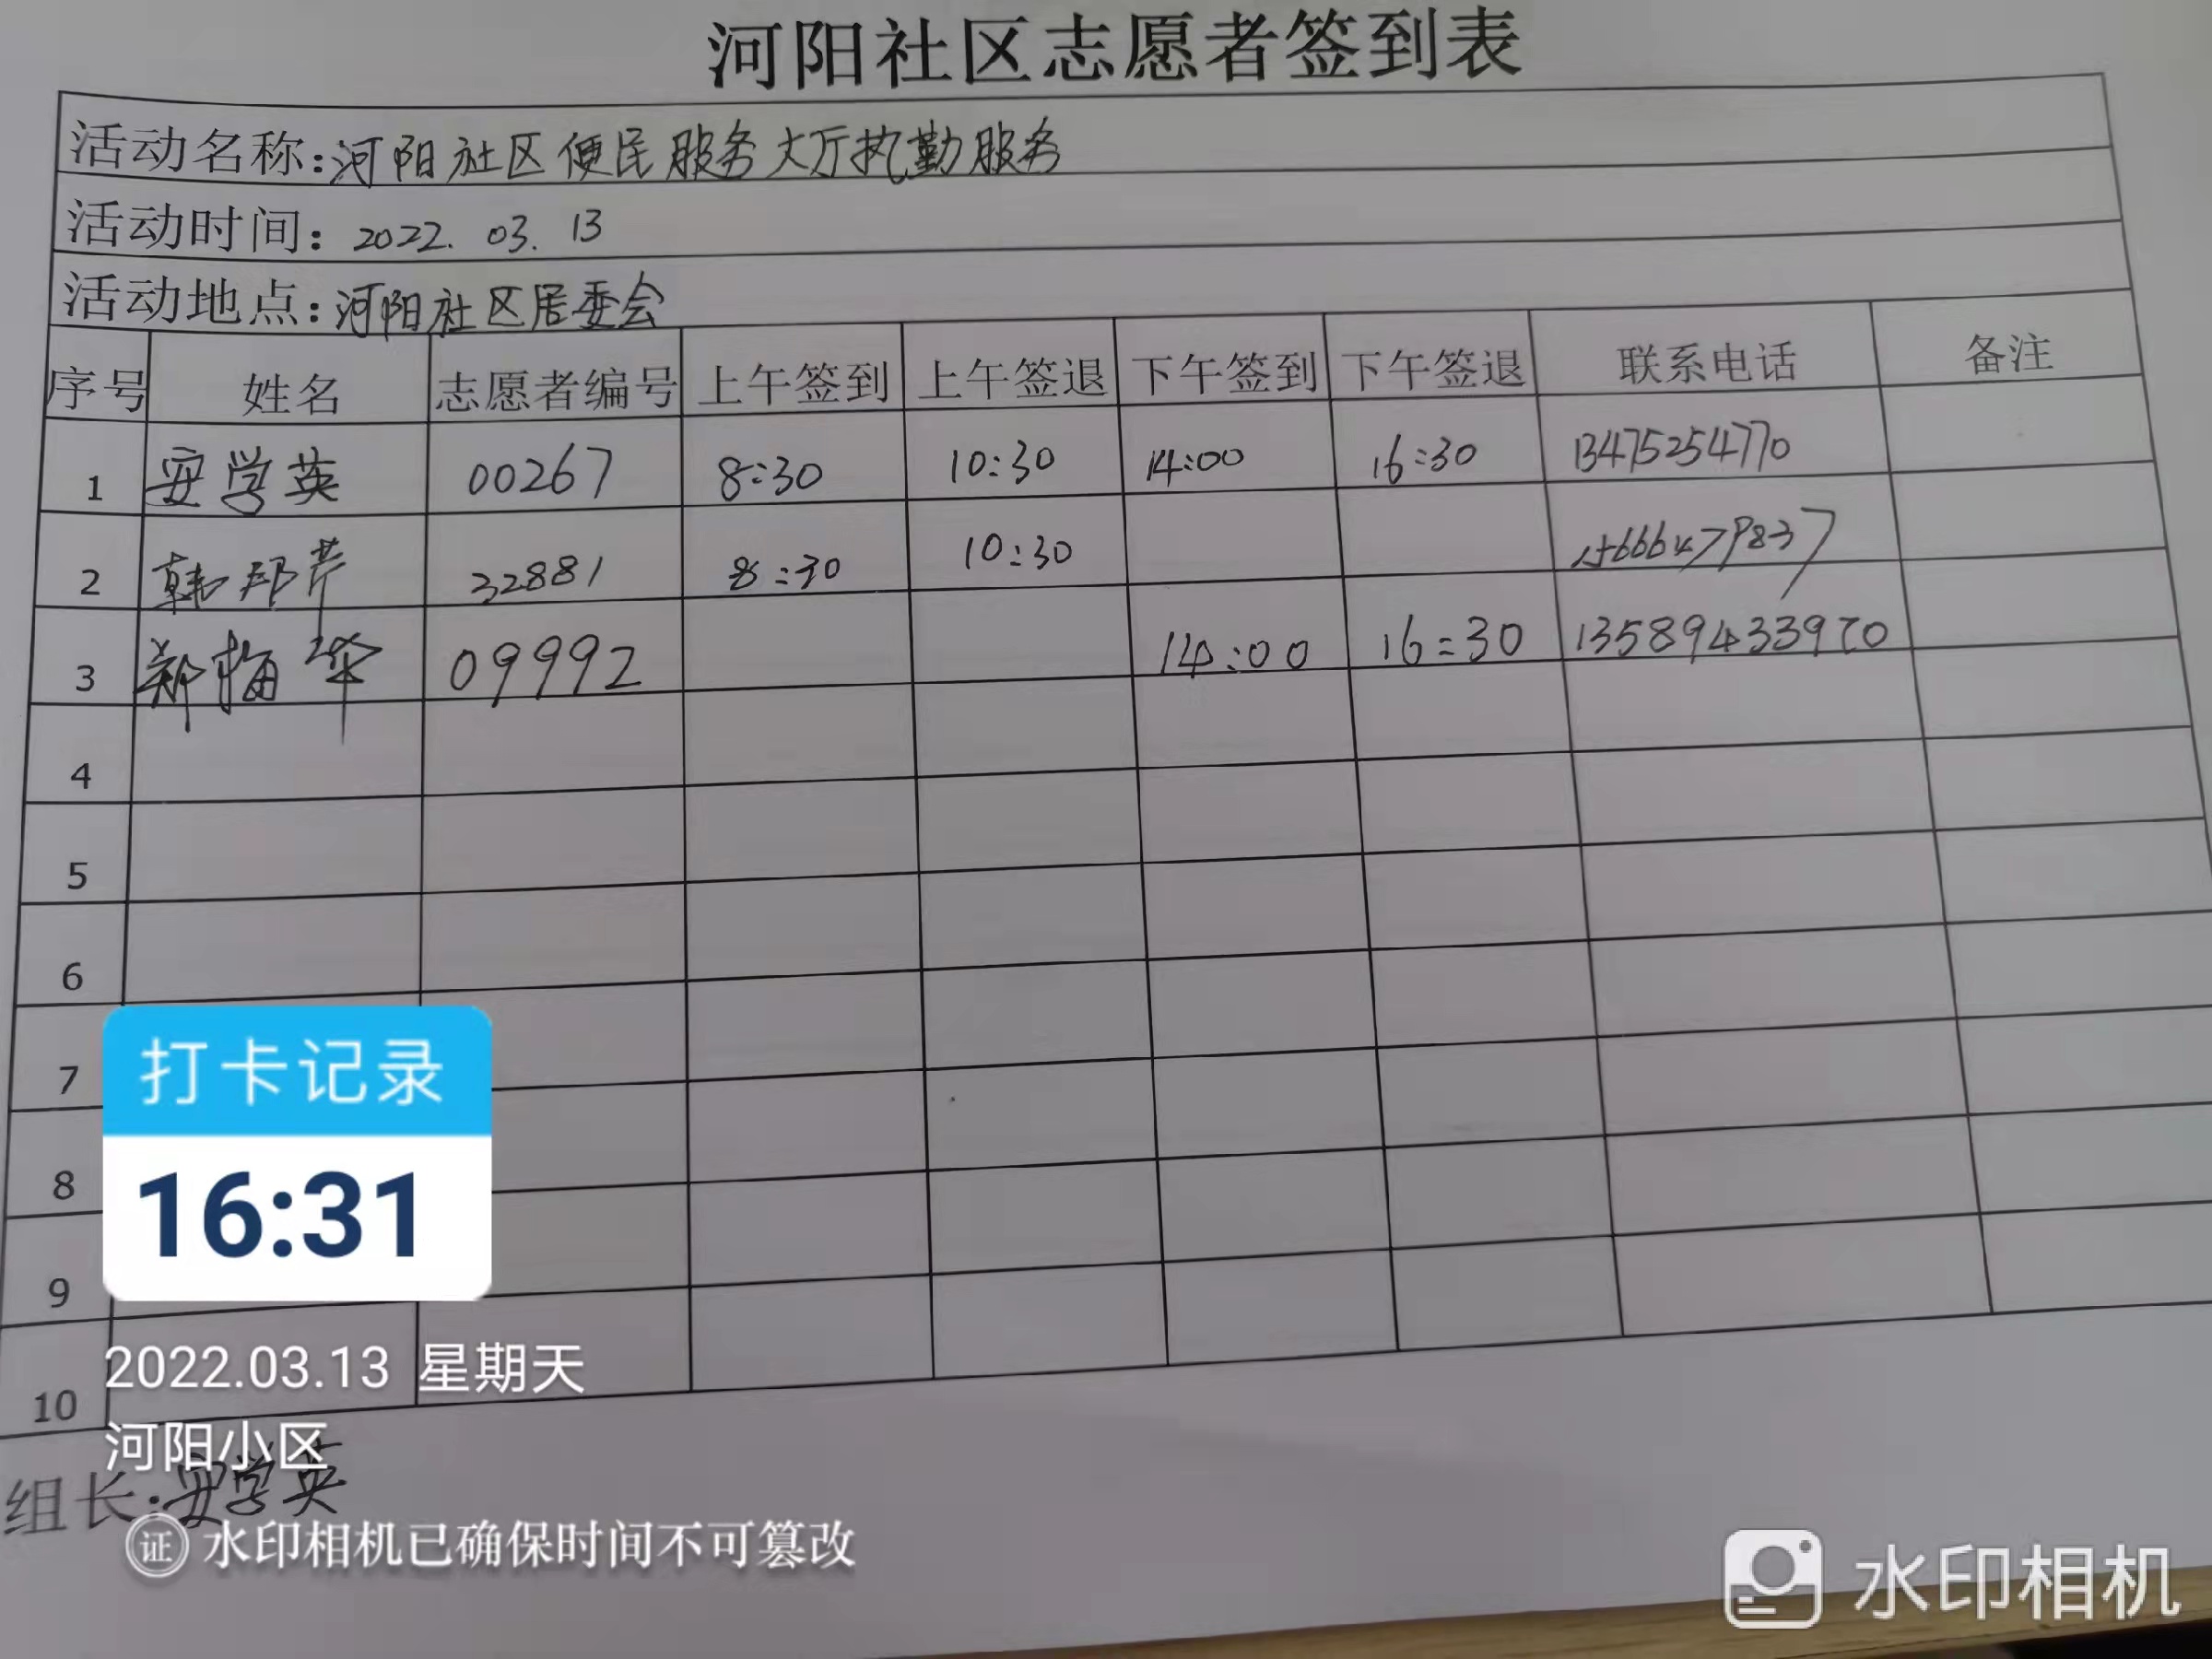 河阳社区志愿者签到表
活动名称:河阳社区便民服务大厅执勤服务
活动时间: 2022. 03. 13
活动地点:河阳社区居委会
序号 姓名 志愿者编号 上午签到 上午签退 下午签到 下午签退 联系电话 备注
1 安学英 00267 8:30 10:30 14:00 16:30 13475254770
2 韩邦芹 32881 8:30 10:30
3 郑梅华 09992 14:00 16:30
4
5
6
7
8
9
10
打卡记录
16:31
2022.03.13 星期天
河阳小区
组长:安学英
证 水印相机已确保时间不可篡改
水印相机